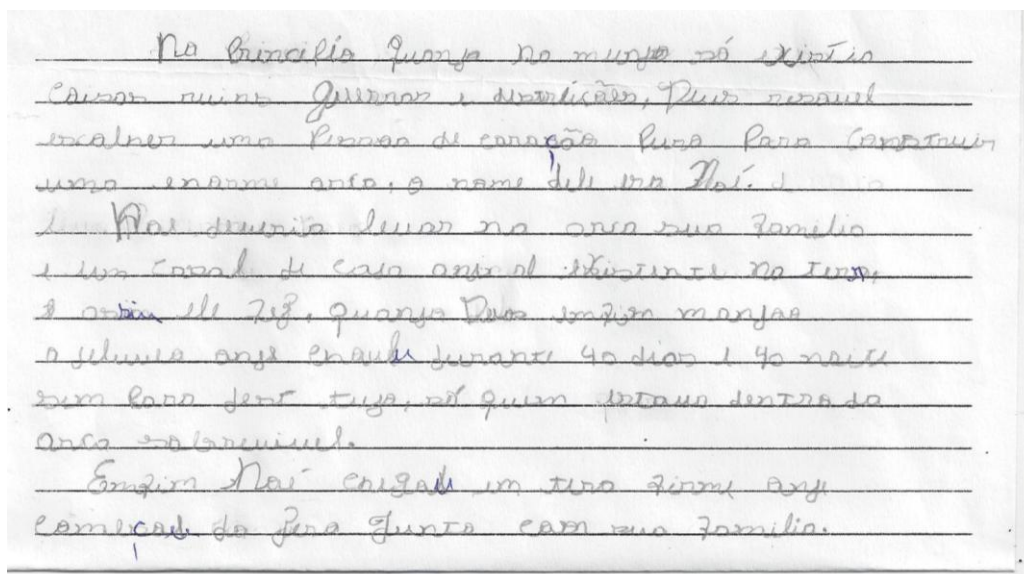 No Principio Quanja no munja só existia
Coisas ruins Guerras e destruicão, Deus resouvel
escolher uma Pessoa de coração Pura Para Construir
uma enorme arca, o nome dele era Noé.
Noé deveria levar na arca sua Familia
e um casal de cada animal existente na terra,
e assim ele fez. Quanja Deus emfim manjou
o jeluvio onje choveu durante 40 dias e 40 noite
sem Para jestruja, só quem estava dentro da
arca sobrevivel.
Emfim Noé chegou em tera firme onje
começou do Jero Junto com sua Familia.